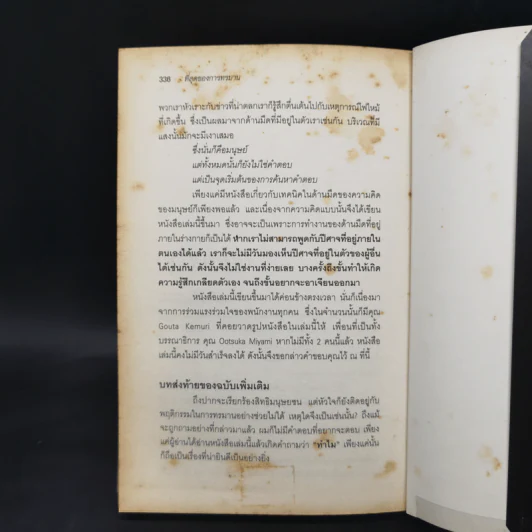 338 ที่สุดของการทรมาน
พวกเราหัวเราะกันข่าวที่น่าตลกเราก็รู้สึกตื่นเต้นไปกับเหตุการณ์ไฟไหม้
ที่เกิดขึ้น ซึ่งเป็นผลมาจากด้านมืดที่มีอยู่ในตัวเราเช่นกัน บริเวณที่มี
แสงนั้นมักจะมีเงาเสมอ
ซึ่งนั่นก็คือมนุษย์
แต่ทั้งหมดนั้นก็ยังไม่ใช่คำตอบ
แต่เป็นจุดเริ่มต้นของการค้นหาคำตอบ
เพียงแค่มีหนังสือเกี่ยวกับเทคนิคในด้านมืดของความคิด
ของมนุษย์ก็เพียงพอแล้ว และเนื่องจากความคิดแบบนั้นจึงได้เขียน
หนังสือเล่มนี้ขึ้นมา ซึ่งอาจจะเป็นเพราะการทำงานของด้านมืดที่อยู่
ภายในร่างกายก็เป็นได้ หากเราไม่สามารถพูดกับปีศาจที่อยู่ภายใน
ตนเองได้แล้ว เราก็จะไม่มีวันมองเห็นปีศาจที่อยู่ในตัวของผู้อื่น
ได้เช่นกัน ดังนั้นจึงไม่ใช่งานที่ง่ายเลย บางครั้งถึงขั้นทำให้เกิด
ความรู้สึกเกลียดตัวเอง จนถึงขั้นอยากจะอาเจียนออกมา
หนังสือเล่มนี้เขียนขึ้นมาได้ค่อนข้างตรงเวลา นั่นก็เนื่องมา
จากการร่วมแรงร่วมใจของพนักงานทุกคน ซึ่งในจำนวนนั้นก็มีคุณ
Gouta Kemuri ที่คอยวาดรูปหนังสือในเล่มนี้ให้ เพื่อนที่เป็นทั้ง
บรรณาธิการ คุณ Ootsuka Miyami หากไม่มีทั้ง 2 คนนี้แล้ว หนังสือ
เล่มนี้คงไม่มีวันสำเร็จลงได้ ดังนั้นจึงขอกล่าวคำขอบคุณไว้ ณ ที่นี้
บทส่งท้ายของฉบับเพิ่มเติม
ถึงปากจะเรียกร้องสิทธิมนุษยชน แต่หัวใจก็ยังติดอยู่กับ
พฤติกรรมในการทรมานอย่างช่วยไม่ได้ เหตุใดจึงเป็นเช่นนั้น? ถึงแม้
จะถูกถามอย่างที่กล่าวมาแล้ว ผมก็ไม่มีคำตอบที่อยากจะตอบ เพียง
แต่ผู้อ่านได้อ่านหนังสือเล่มนี้แล้วเกิดคำถามว่า "ทำไม" เพียงแค่นั้น
ก็ถือเป็นเรื่องที่น่ายินดีเป็นอย่างยิ่ง